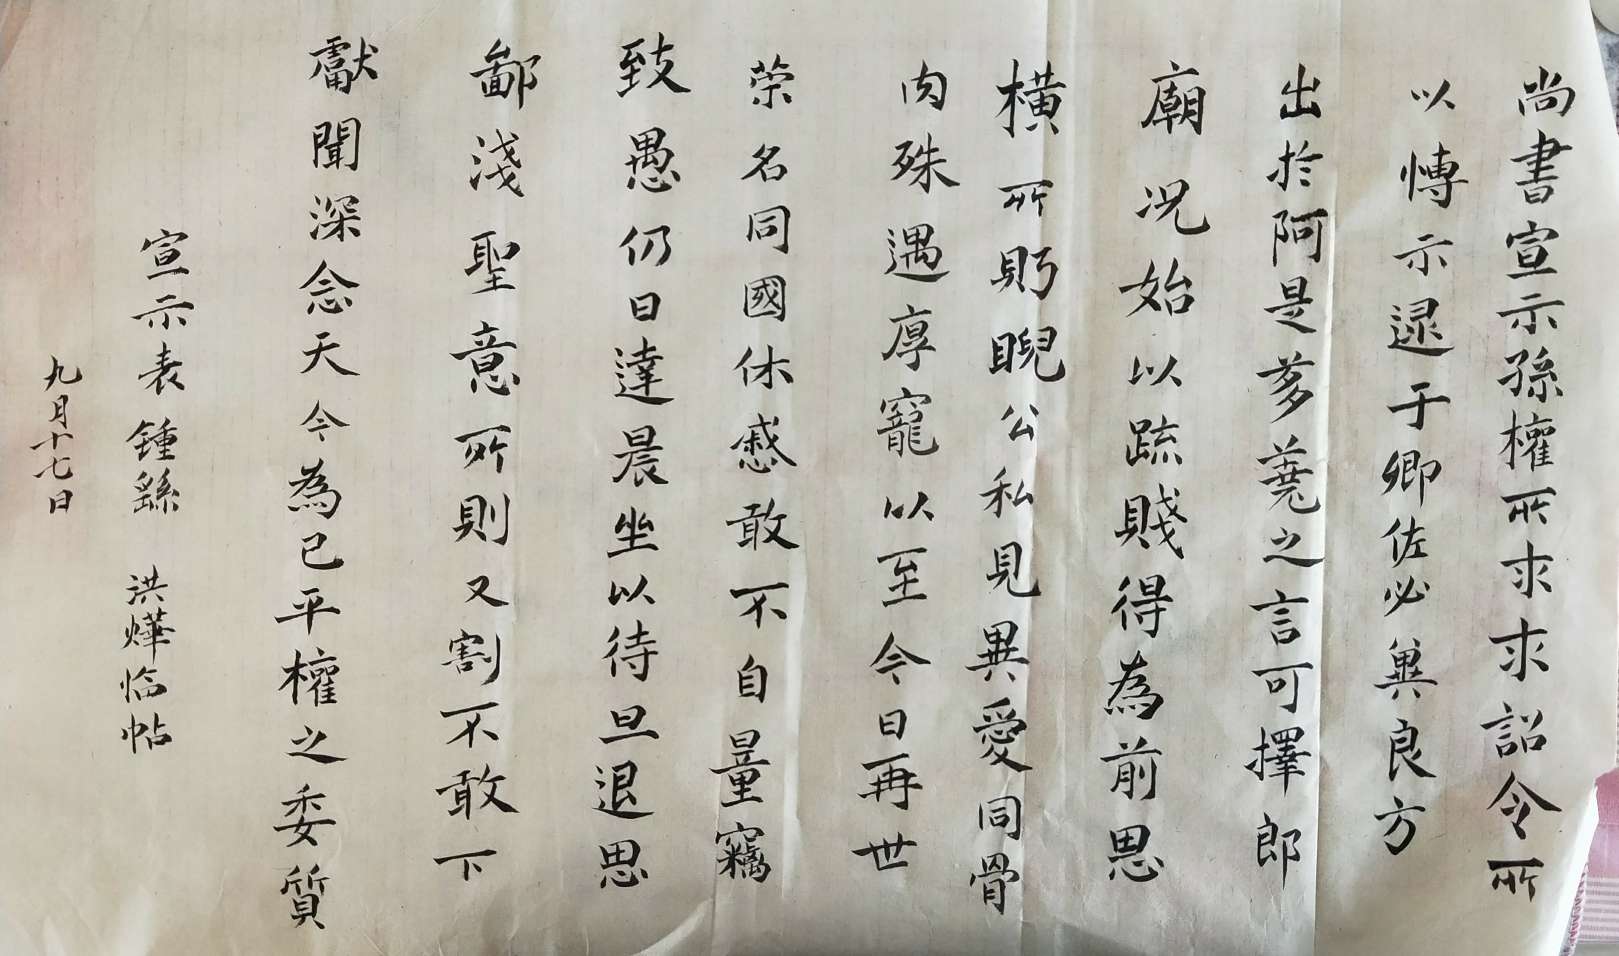 尚書宣示孫權所求求詔令所
以博示逯于卿佐必冀良方
出於阿是芻蕘之言可擇郎
廟況始以疏賤得為前思
橫所䀠睨公私見異愛同骨
肉殊遇厚寵以至今日再世
榮名同國休慼敢不自量竊
致愚仍日達晨坐以待旦退思
鄙淺聖意所則又割不敢下
獻聞深念天今為已平權之委質
宣示表鍾繇 洪燁临帖
九月十七日